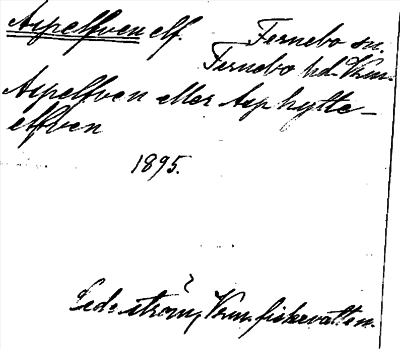 Aspelfven elf. Fernebo sn.
Fernebo hd. Vrm.
Aspelfven eller Asphytte-
elfven
1895.
?
Cederström, Vrm. fiskevatten.